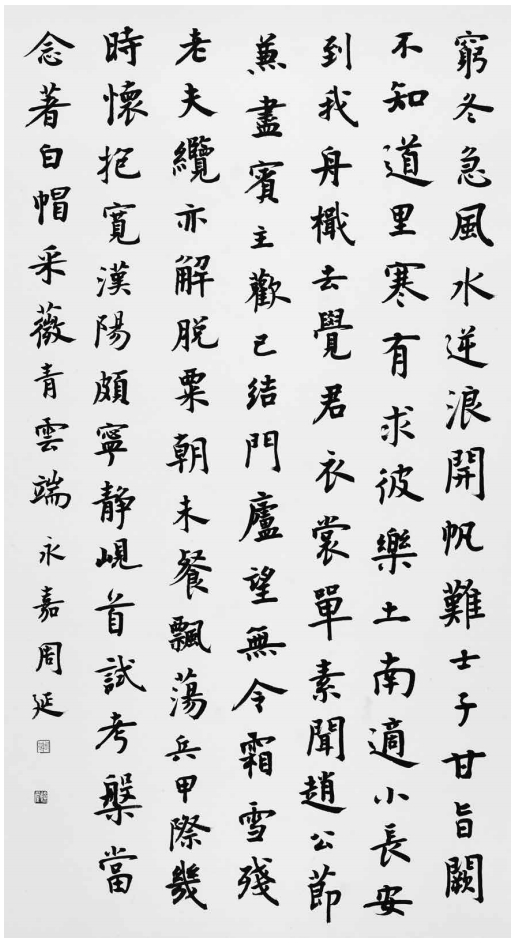 窮冬急風水逆浪開帆難士子甘旨闕
不知道里寒有求彼樂土南適小長安
到我舟檝去覺君衣裳單素聞趙公節
兼盡賓主歡已結門廬望無令霜雪殘
老夫纜亦解脫粟朝未餐飄蕩兵甲際幾
時懷抱寬漢陽頗寧靜峴首試考槃當
念著白帽采薇青雲端 永嘉周延